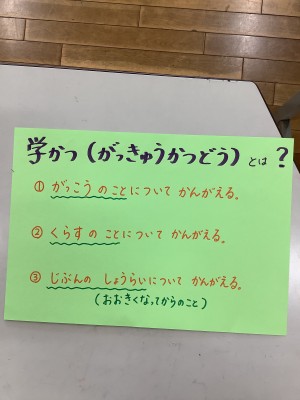 学かつ(がっきゅうかつどう)とは?
① がっこう の ことについて かんがえる。
② くらす の ことについて かんがえる。
③ じぶんの しょうらいについて かんがえる。
(おおきくなってからのこと)